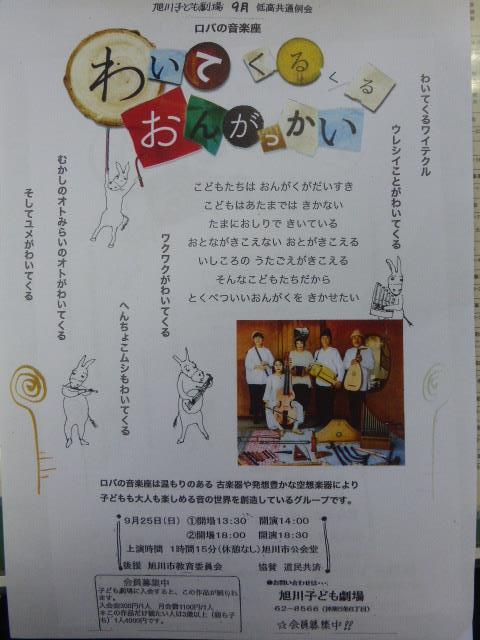 旭川子ども劇場 9月 低高共通例会
ロバの音楽座
わいてくるくる
おんがっかい
わいてくるワイテクル
ウレシイことがわいてくる
こどもたちは おんがくがだいすき
こどもはあたまでは きかない
たまにおしりで きいている
おとながきこえない おとがきこえる
いしころの うたごえがきこえる
そんなこどもたちだから
とくべついいおんがくを きかせたい
ワクワクがわいてくる
へんちょこムシもわいてくる
むかしのオトみらいのオトがわいてくる
そしてユメがわいてくる
ロバの音楽座は温もりのある 古楽器や発想豊かな空想楽器により
子どもも大人も楽しめる音の世界を創造しているグループです。
9月25日(日) ①開場13:30 開演14:00
②開場18:00 開演18:30
上演時間 1時間15分(休憩なし) 旭川市公会堂
後援 旭川市教育委員会 協賛 道民共済
会員募集中
子ども劇場に入会すると、この作品が観られます。
入会金300円/1人 月会費1100円/1人
＊この作品だけ観たい人は3歳以上(親も子も)1人4000円です。
●お問い合わせは…
旭川子ども劇場
62-8566
☆会員募集中!!